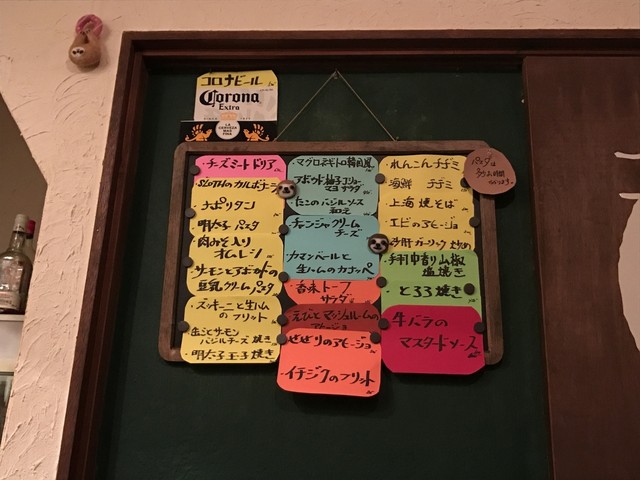 コロナビール
Corona
Extra
・チーズミートドリア
・SLOTHのカルボナーラ
・ナポリタン
・明太子パスタ
・肉みそ入り
オムレツ
・サーモンとアボカドの
豆乳クリームパスタ
・ズッキーニと生ハム
のフリット
・サーモン
バジルチーズ焼き
・明太子玉子焼き
・マグロユッケ 韓国風
・アボカド柚子コショー
マヨサラダ
・たこのバジルソース
和え
・チャンジャクリーム
チーズ
・カマンベールと
生ハムのカナッペ
・香味トーフ
サラダ
・えびとマッシュルームの
アヒージョ
・せせりのアヒージョ
・イチジクのフリット
・れんこんチヂミ
・海鮮 チヂミ
・上海焼そば
・エビのアヒージョ
・砂肝ガーリック炒め
・手羽中青山椒
塩焼き
・とろろ焼き
・牛バラの
マスタードソース
パスタは